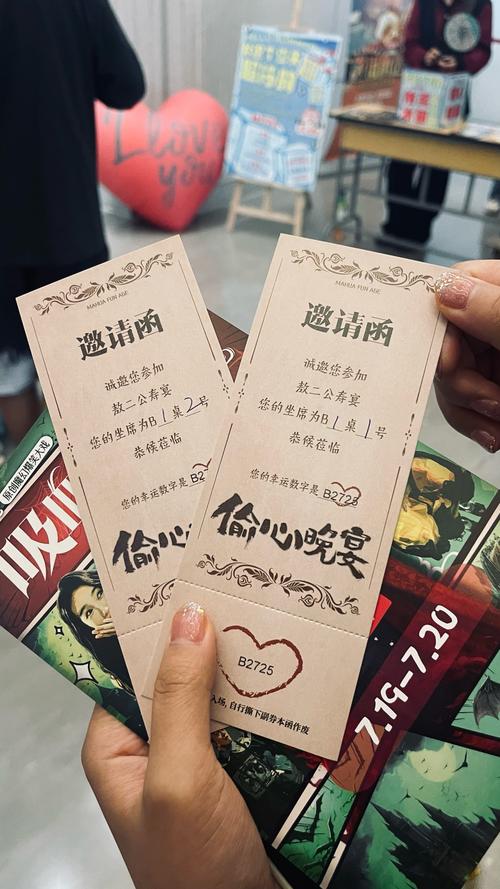 I Love
you
MAHUA FUN AGE
邀请函
诚邀您参加
敖二公寿宴
您的坐席为B1桌2号
恭候莅临
您的幸运数字是 B2
偷心
MAHUA FUN AGE
邀请函
诚邀您参加
敖二公寿宴
您的坐席为B1桌1号
恭候莅临
您的幸运数字是 B2725
偷心晚宴
B2725
入场，自行撕下副券本函作废
原创魔幻爆笑大戏
吸血
7.19-7.20